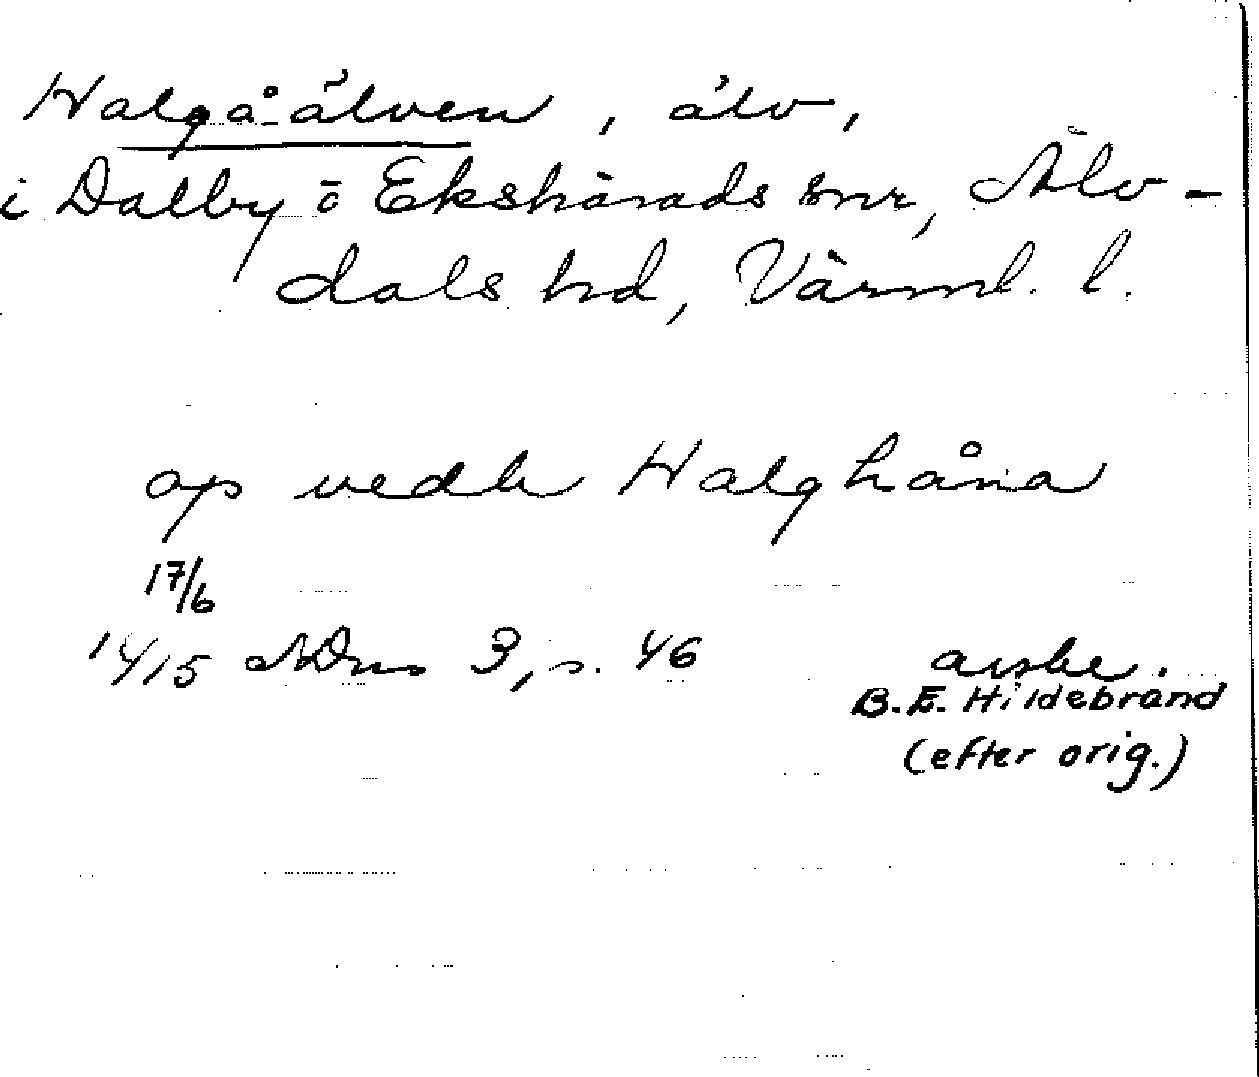 Halgå-älven, älv,
i Dalby o Ekshärads snr, Älv-
dals hd, Värml. l.
op vedh Halghåna
17/6
1415 NDns 3, s. 46
avskr.
B.E. Hildebrand
(efter orig.)